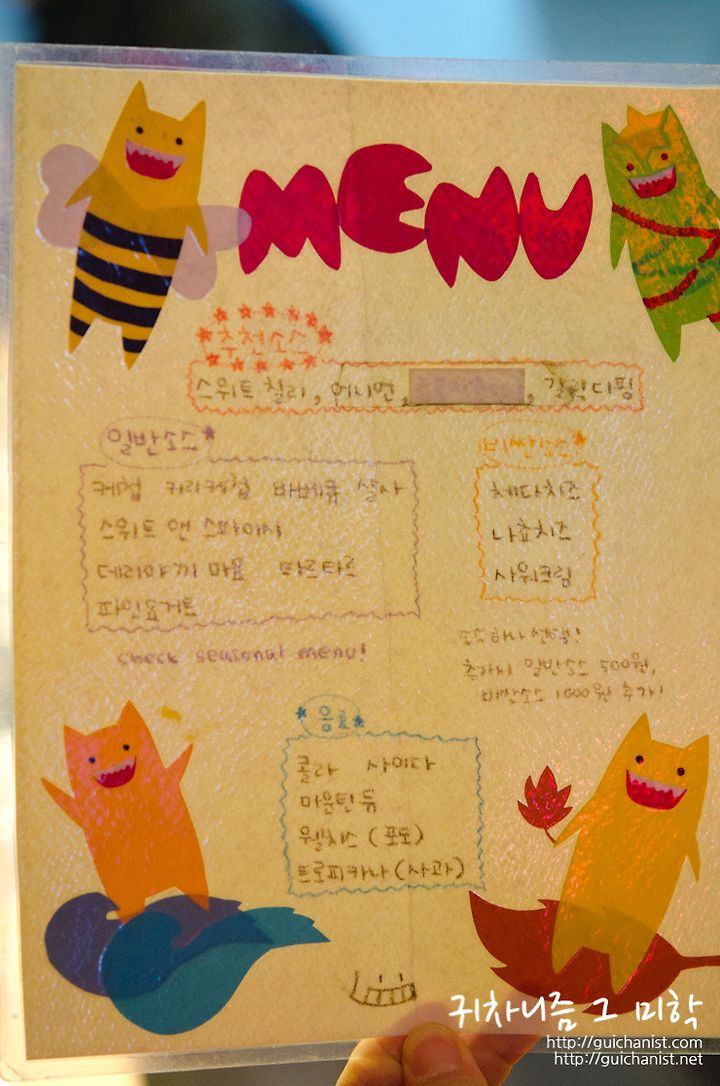 MENU
추천소스
스위트 칠리, 어니언, , 갈릭디핑
일반소스
케첩 커리케첩 바베큐 살사
스위트 앤 스파이시
데리야끼 마요 타르타르
파인요거트
check seasonal menu!
비싼소스
체다치즈
나쵸치즈
사워크림
소스 하나 선택!
추가시 일반소스 500원,
비싼소스 1000원 추가!
음료
콜라 사이다
마운틴듀
웰치스 (포도)
트로피카나 (사과)
귀차니즘 그 미학
http://guichanist.com
http://guichanist.net